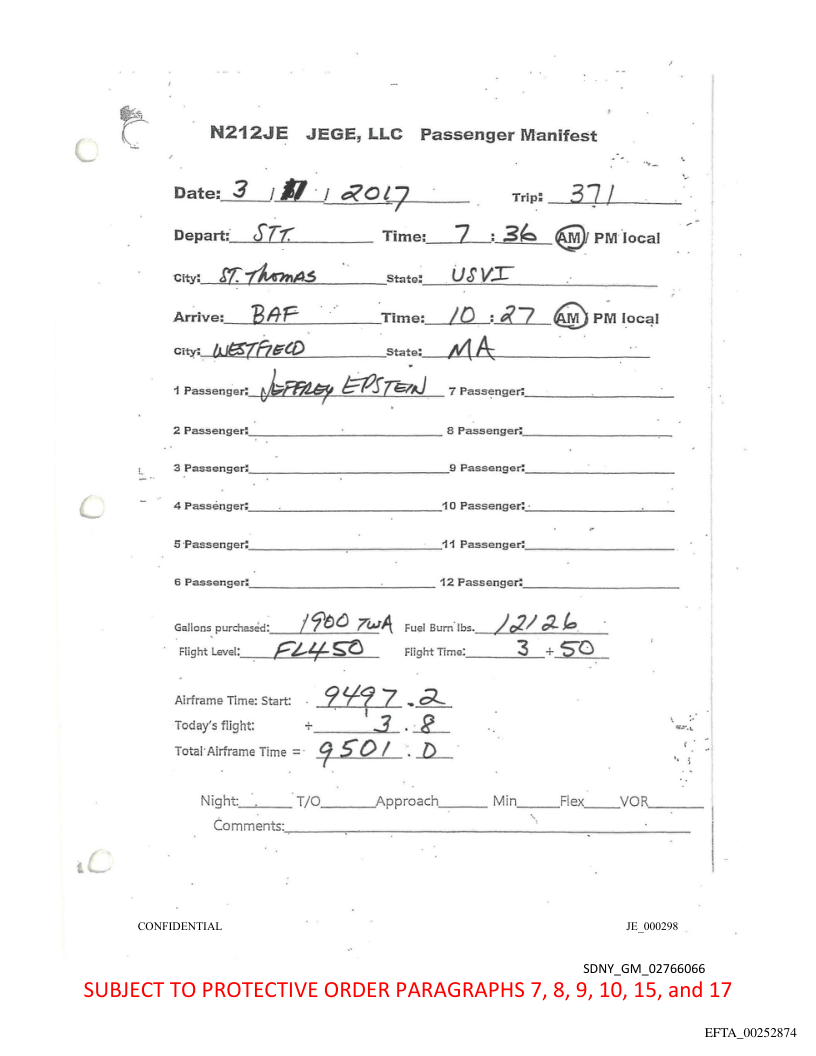 N212JE JEGE, LLC Passenger Manifest
Date: 3 / / 2017 Trip: 371
Depart: STT. Time: 7 : 36 AM/ PM local
City: ST. THOMAS State: USVI
Arrive: BAF Time: 10 : 27 AM/ PM local
City: WESTFIELD State: MA
1 Passenger: JEFFREY EPSTEIN 7 Passenger:
2 Passenger: 8 Passenger:
3 Passenger: 9 Passenger:
4 Passenger: 10 Passenger:
5 Passenger: 11 Passenger:
6 Passenger: 12 Passenger:
Gallons purchased: 1900 TWA Fuel Burn lbs. 12126
Flight Level: FL450 Flight Time: 3 + 50
Airframe Time: Start: 9497.2
Today's flight: + 3.8
Total Airframe Time = 9501.0
Night: T/O Approach Min Flex VOR
Comments:
CONFIDENTIAL JE_000298
SDNY_GM_02766066
SUBJECT TO PROTECTIVE ORDER PARAGRAPHS 7, 8, 9, 10, 15, and 17
EFTA_00252874